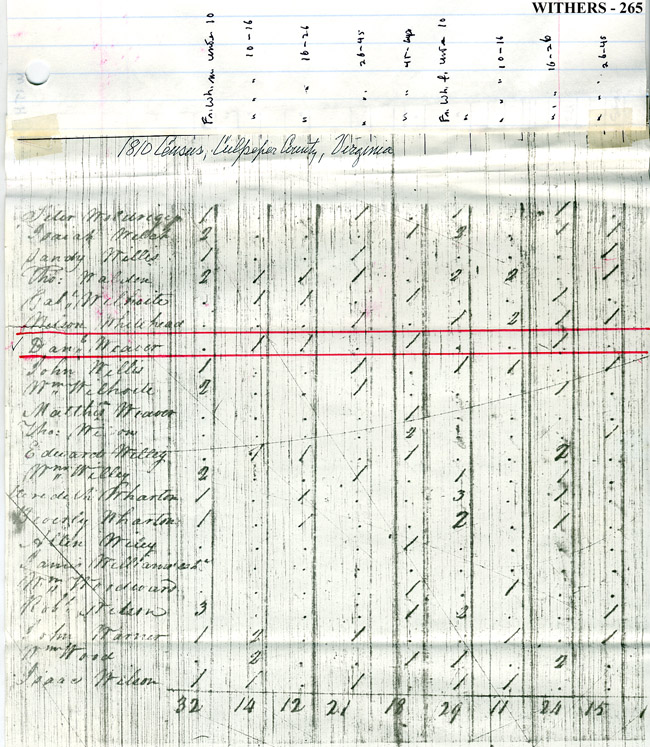 WITHERS - 265
Fr. Wh. m. under 10 " " 10-16 " " 16-26 " " 26-45 " " 45-up Fr. Wh. f. under 10 " " 10-16 " " 16-26 " " 26-45
1810 Census, Culpeper County, Virginia
1 . . 1 . 1 . 1 .
Isaiah Welch 2 . . . 1 2 . 1 1
Sandy Willis 1 . . 1 . . . . 1
Tho: Walden 2 1 1 1 . 2 2 . 1
Gab.l Wilhoite . 1 1 . 1 . . 1 .
Whitehead . . . 1 . 1 2 1 1
Dan.l Weaver . 1 1 . 1 . . 1 .
John Willis 1 . . 1 . 1 1 . 1
Wm Wilhoite 2 . . 1 . . . 1 .
Matthis Weaver . . . . 1 . . . .
Tho: . . . . 2 . . . 1
Edward Willey . 1 1 . 1 . . 2 .
Wm Willey 2 . . 1 . 1 . 1 .
Wharton 1 . 1 . . 3 . 1 .
Beverly Wharton 1 . 1 . . 2 . 1 .
Allen Wiley . . . . 1 . . . .
James
Wm Woodward . . . . 1 . 1 . .
Rob.t Wilson 3 . . . 1 2 . . 1
John Warner 1 2 . 1 . . 1 . 1
Wm Wood . 2 . . 1 1 . 2 .
Isaac Wilson 1 1 . 1 . 1 1 . .
32 14 12 21 18 29 11 24 15 1